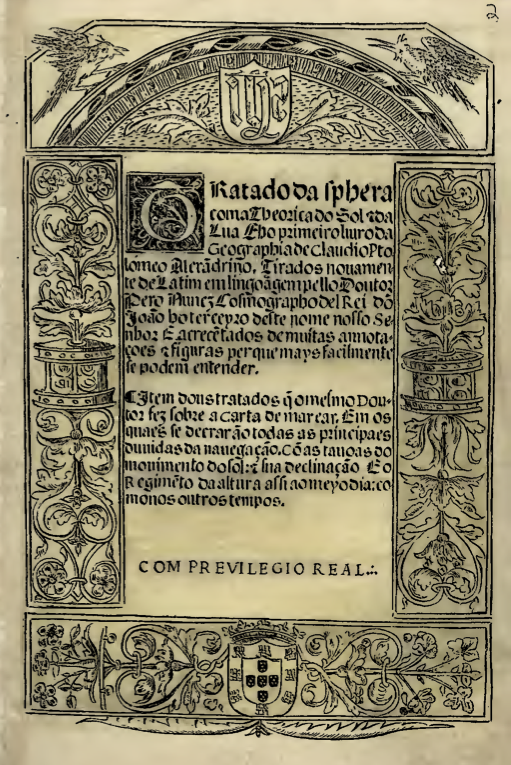 22
jhs
TRatado da sphera
com a Theorica do Sol ⁊ da
Lua E ho primeiro liuro da
Geographia de Claudio Pto
lomeo Alexãdrino. Tirados nouamen
te de Latim em lingoãgem pello Doutor
Pero Nunez Cosmographo del Rei dõ
João ho terceyro deste nome nosso Se
nhor E acrecẽtados de muitas annota
ções ⁊ figuras per que mays facilmente
se podem entender.
¶ Item dous tratados q̃ o mesmo Dou-
tor fez sobre a carta de marear. Em os
quaes se decrarão todas as principaes
duuidas da nauegação. Cõ as tauoas do
mouimento do sol: ⁊ sua declinação E o
Regimẽto da altura assi ao meyo dia: co
mo nos outros tempos.
COM PREVILEGIO REAL.·.